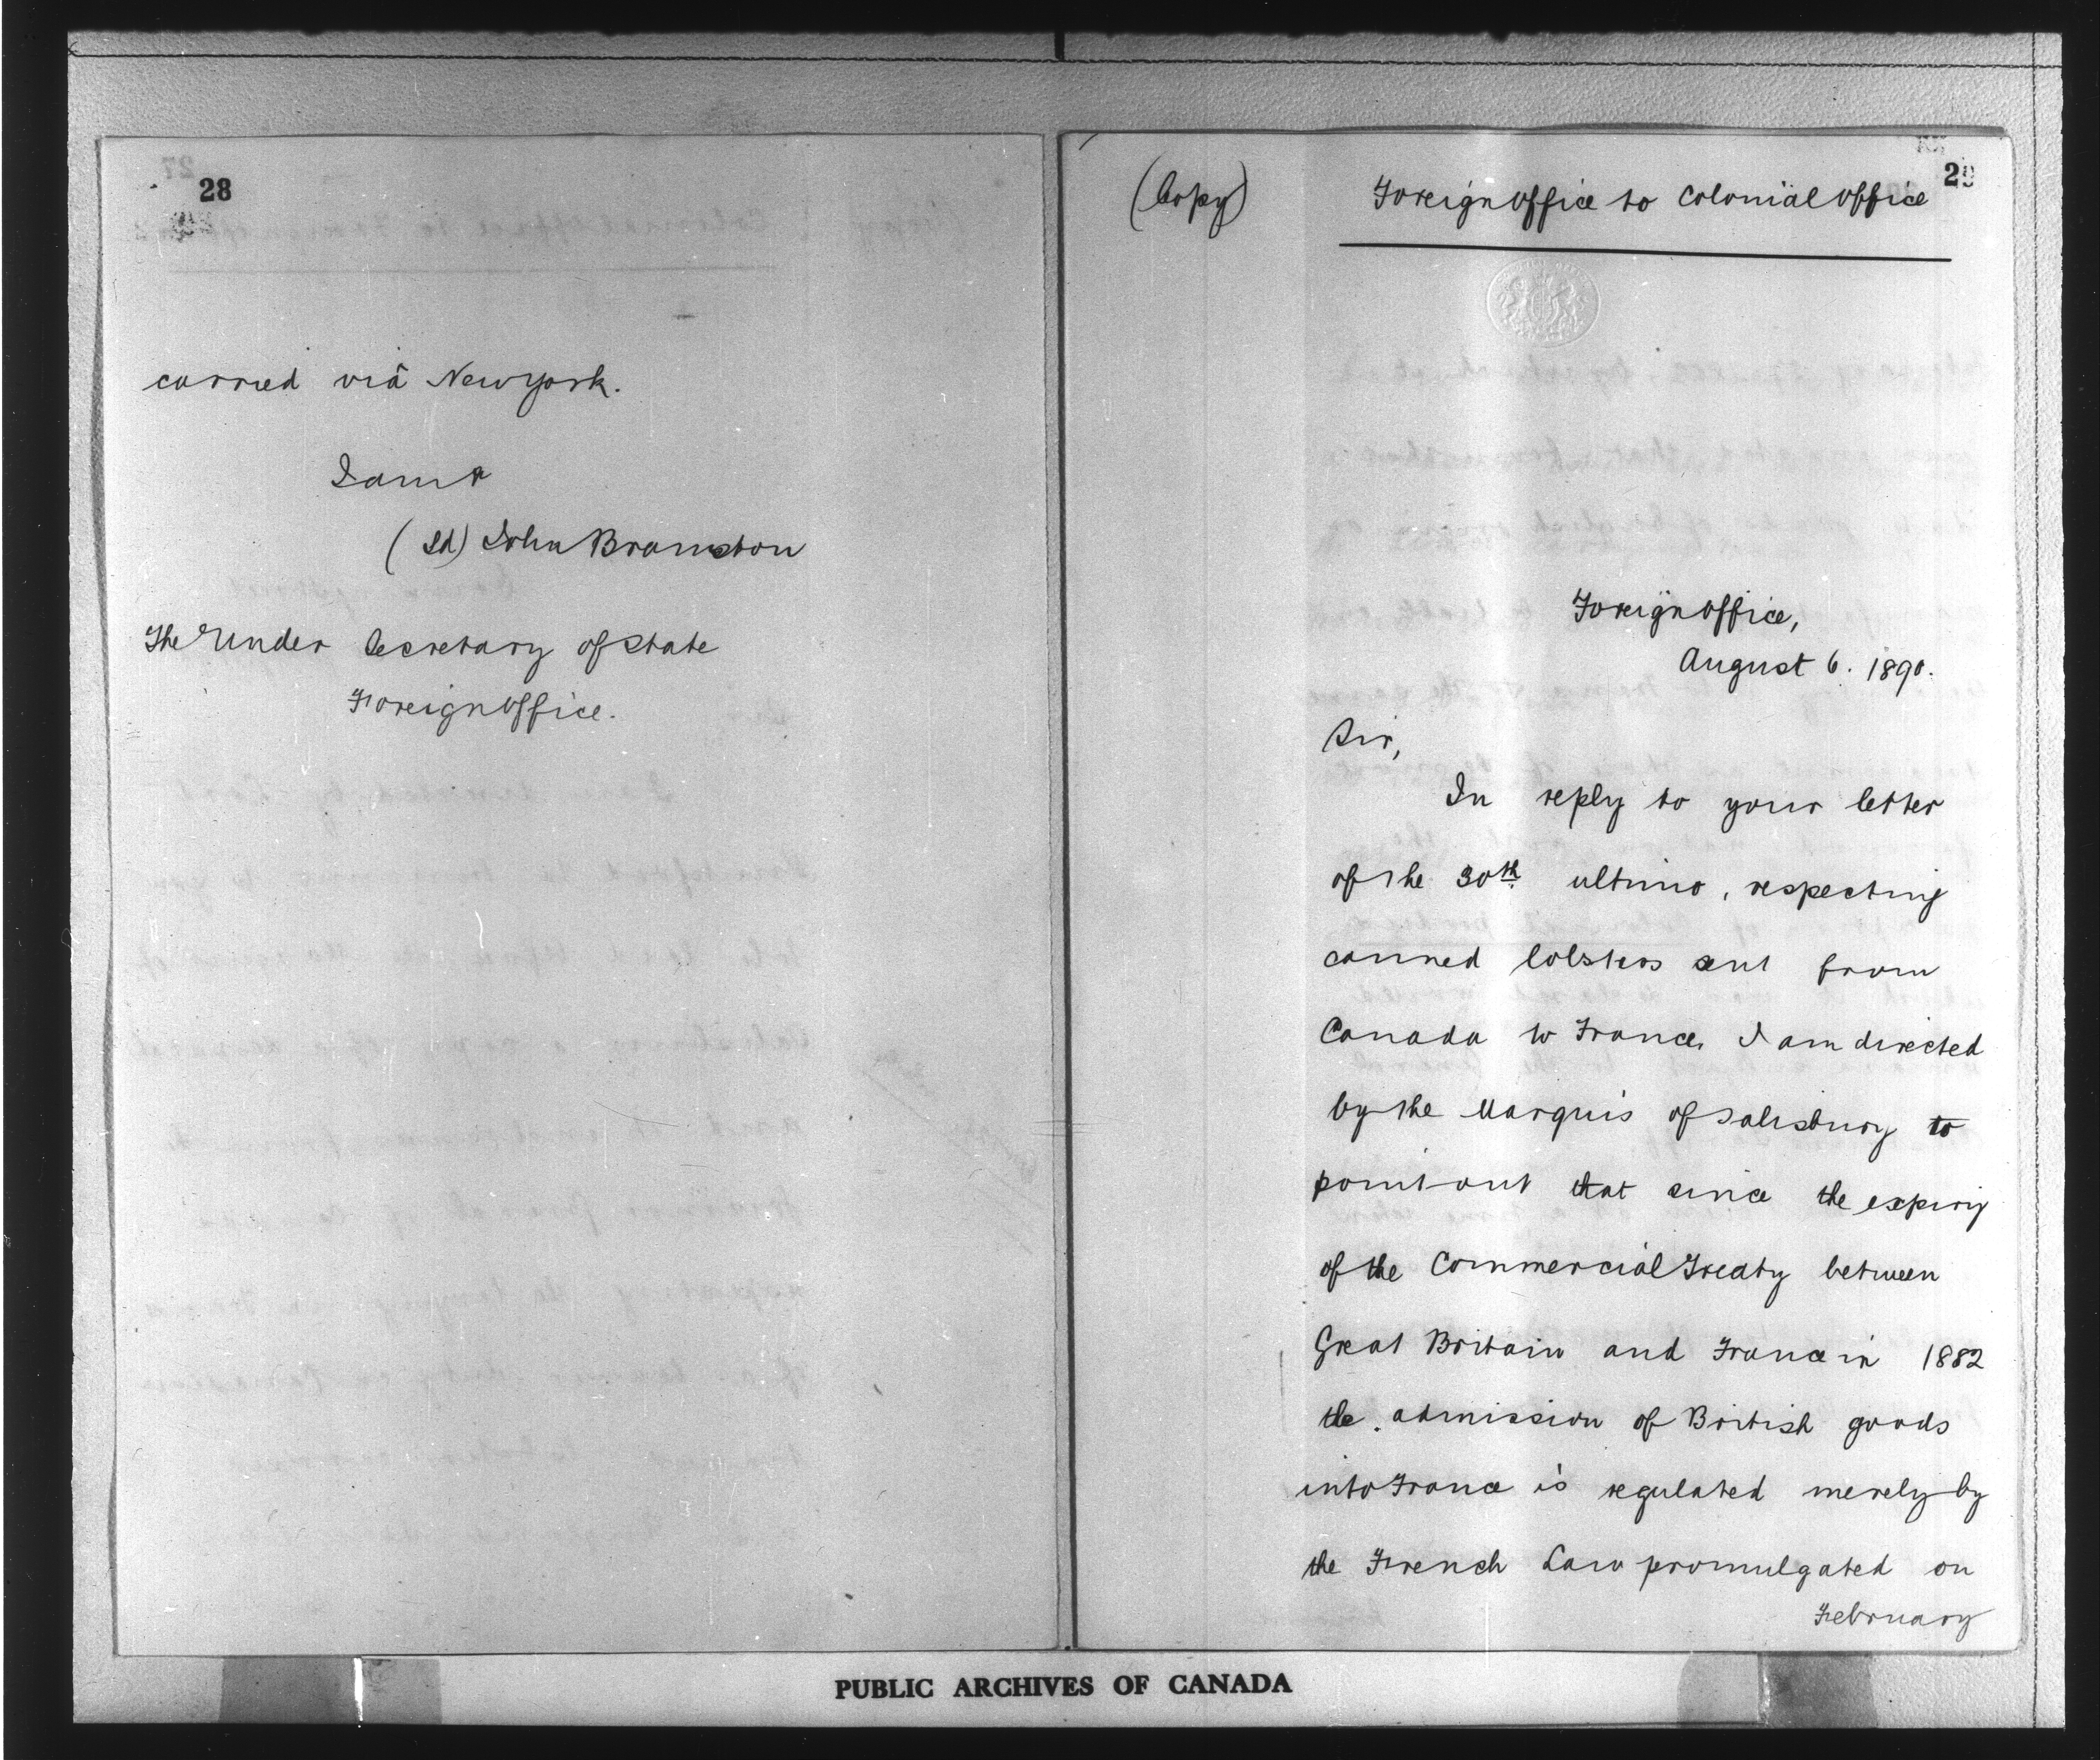 28
carried viâ New York.
I am &
(sd) John Bramston
The Under Secretary of State
Foreign Office.
29
(Copy)
Foreign Office to Colonial Office
Foreign Office,
August 6. 1890.
Sir,
In reply to your letter
of the 30th ultimo, respecting
canned lobsters sent from
Canada to France, I am directed
by the Marquis of Salisbury to
point out that since the expiry
of the Commercial Treaty between
Great Britain and France in 1882
the admission of British goods
into France is regulated merely by
the French Law promulgated on
February
PUBLIC ARCHIVES OF CANADA